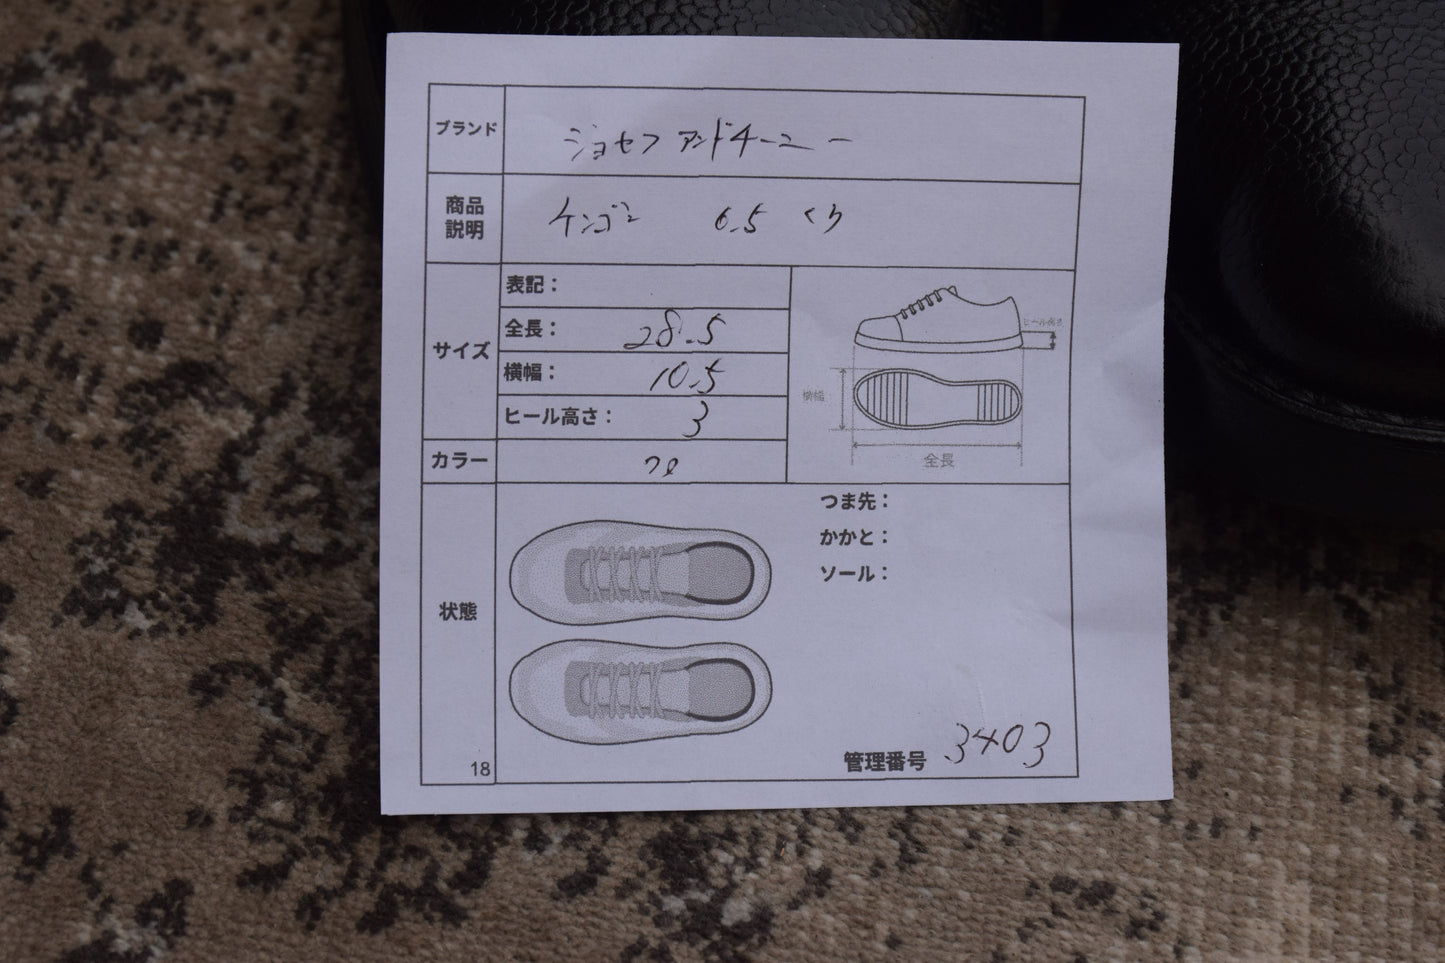 ブランド
ジョセフ アンドチーニー
商品
説明
ケンゴン 6.5 くり
サイズ
表記：
全長： 28.5
横幅： 10.5
ヒール高さ： 3
ヒール高さ
横幅
全長
カラー
クロ
状態
つま先：
かかと：
ソール：
18
管理番号 3403